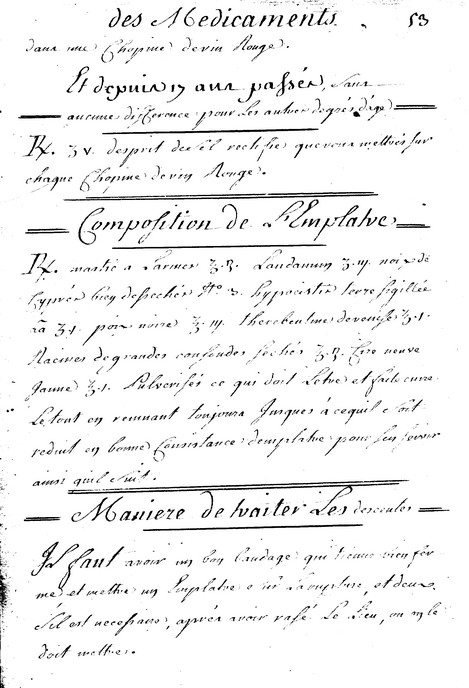 des Medicaments. 53
dans une Chopine de vin Rouge.
Et depuis 17 ans passés, sans
aucune difference pour les autres degrés d'âge
℞. ʒ v. desprit de sel rectifie que vous mettrés sur
chaque Chopine de vin Rouge.
Composition de L'Emplatre
℞. mastic en Larmes ℥. Laudanum ʒ. iij. noix de
Cyprés bien dessechés N.o 3. hypociste terre sigillée
ãa ʒ. j. poix noire ℥. iij. therebentine de venise ℥. j.
Racines de grandes consoudes sechés ℥. Cire neuve
Jaune ℥. j. Pulverisés ce qui doit Letre et faite cuire
Le tout en remuant toujours Jusques à ce quil soit
reduit en bonne Consistance demplatre pour sen servir
ainsi quil suit.
Maniere de traiter Les descentes
Il faut avoir un bon bandage qui tienne bien fer
me et mettre un Emplatre sur La rompture, et deux
s'il est necessaire, aprés avoir rasé Le Lieu, ou on le
doit mettre.